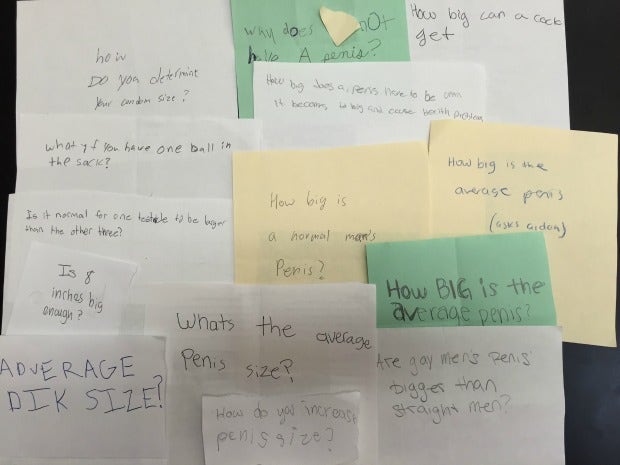 how
Do you determint
your condom size?
why does not
have A penis?
How big can a cock
get
How big does a penis have to be when
it becomes big and cause health problem
what if you have one ball in
the sack?
How big is
a normal man's
Penis?
How big is the
average penis
(asks aidan)
Is it normal for one testicle to be bigger
than the other three?
Is 8
inches big
enough?
How BIG is the
average penis?
Whats the average
Penis size?
ADVERAGE
DIK SIZE?
How do you increase
penis size?
Are gay men's penis'
bigger than
straight men?